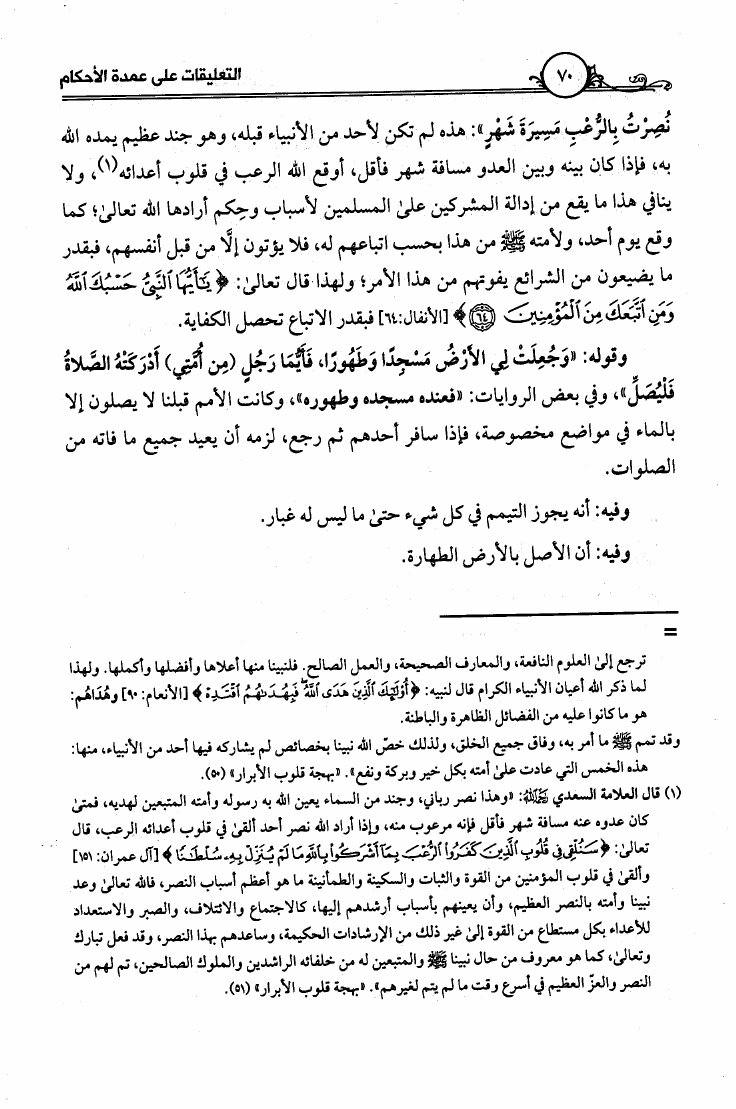 التعليقات على عمدة الأحكام
٧٠
نُصِرْتُ بِالرُّعْبِ مَسِيرَةَ شَهْرٍ»: هذه لم تكن لأحد من الأنبياء قبله، وهو جند عظيم يمده الله
به، فإذا كان بينه وبين العدو مسافة شهر فأقل، أوقع الله الرعب في قلوب أعدائه(١)، ولا
ينافي هذا ما يقع من إدالة المشركين على المسلمين لأسباب وحِكم أرادها الله تعالى؛ كما
وقع يوم أحد، ولأمته ﷺ من هذا بحسب اتباعهم له، فلا يؤتون إلَّا من قبل أنفسهم، فبقدر
ما يضيعون من الشرائع يفوتهم من هذا الأمر؛ ولهذا قال تعالى: ﴿يَٰٓأَيُّهَا ٱلنَّبِىُّ حَسْبُكَ ٱللَّهُ
وَمَنِ ٱتَّبَعَكَ مِنَ ٱلْمُؤْمِنِينَ ٦٤﴾ [الأنفال:٦٤] فبقدر الاتباع تحصل الكفاية.
وقوله: «وَجُعِلَتْ لِي الأَرْضُ مَسْجِدًا وَطَهُورًا، فَأَيُّمَا رَجُلٍ (مِن أُمَّتِي) أَدْرَكَتْهُ الصَّلاةُ
فَلْيُصَلِّ»، وفي بعض الروايات: «فعنده مسجده وطهوره»، وكانت الأمم قبلنا لا يصلون إلا
بالماء في مواضع مخصوصة، فإذا سافر أحدهم ثم رجع، لزمه أن يعيد جميع ما فاته من
الصلوات.
وفيه: أنه يجوز التيمم في كل شيء حتى ما ليس له غبار.
وفيه: أن الأصل بالأرض الطهارة.
=
ترجع إلى العلوم النافعة، والمعارف الصحيحة، والعمل الصالح. فلنبينا منها أعلاها وأفضلها وأكملها. ولهذا
لما ذكر الله أعيان الأنبياء الكرام قال لنبيه: ﴿أُو۟لَٰٓئِكَ ٱلَّذِينَ هَدَى ٱللَّهُ ۖ فَبِهُدَىٰهُمُ ٱقْتَدِهْ﴾ [الأنعام: ٩٠] وهُدَاهُم:
هو ما كانوا عليه من الفضائل الظاهرة والباطنة.
وقد تمم ﷺ ما أمر به، وفاق جميع الخلق، ولذلك خصّ الله نبينا بخصائص لم يشاركه فيها أحد من الأنبياء، منها:
هذه الخمس التي عادت على أمته بكل خير وبركة ونفع». «بهجة قلوب الأبرار» (٥٠).
(١) قال العلامة السعدي رَحِمَهُ اللَّهُ: «وهذا نصر رباني، وجند من السماء يعين الله به رسوله وأمته المتبعين لهديه، فمتى
كان عدوه عنه مسافة شهر فأقل فإنه مرعوب منه، وإذا أراد الله نصر أحد ألقى في قلوب أعدائه الرعب، قال
تعالى: ﴿سَنُلْقِى فِى قُلُوبِ ٱلَّذِينَ كَفَرُوا۟ ٱلرُّعْبَ بِمَآ أَشْرَكُوا۟ بِٱللَّهِ مَا لَمْ يُنَزِّلْ بِهِۦ سُلْطَٰنًا﴾ [آل عمران: ١٥١]
وألقى في قلوب المؤمنين من القوة والثبات والسكينة والطمأنينة ما هو أعظم أسباب النصر، فالله تعالى وعد
نبينا وأمته بالنصر العظيم، وأن يعينهم بأسباب أرشدهم إليها، كالاجتماع والائتلاف، والصبر والاستعداد
للأعداء بكل مستطاع من القوة إلى غير ذلك من الإرشادات الحكيمة، وساعدهم بهذا النصر، وقد فعل تبارك
وتعالى، كما هو معروف من حال نبينا ﷺ والمتبعين له من خلفائه الراشدين والملوك الصالحين، تم لهم من
النصر والعزّ العظيم في أسرع وقت ما لم يتم لغيرهم». «بهجة قلوب الأبرار» (٥١).